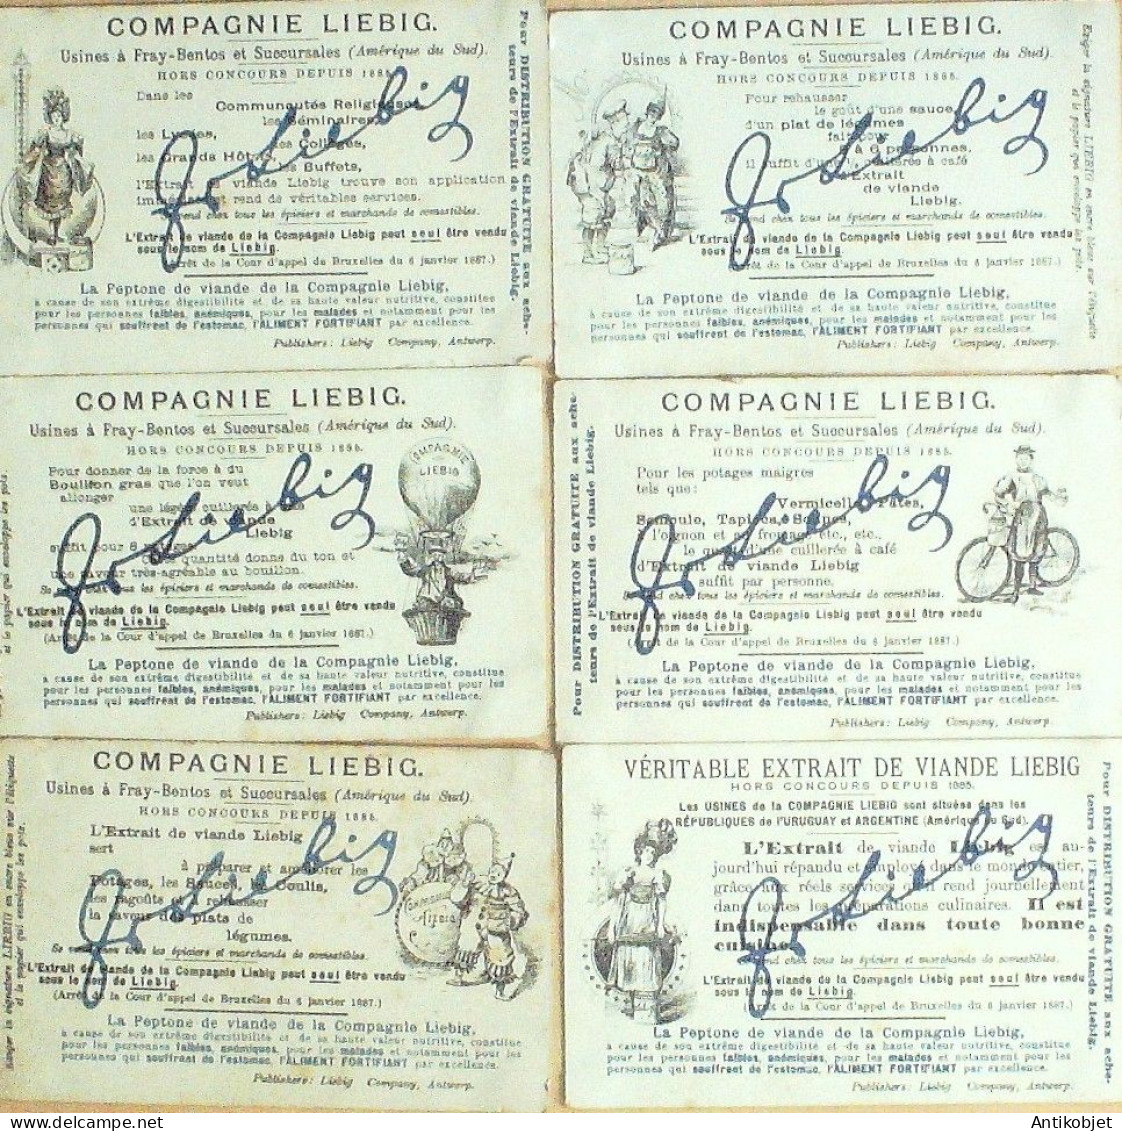 COMPAGNIE LIEBIG.
Usines à Fray-Bentos et Succursales (Amérique du Sud).
HORS CONCOURS DEPUIS 1885.
Dans les
Communautés Religieuses
les Séminaires
les Lycées, les Collèges,
les Grands Hôtels, les Buffets,
l'Extrait de viande Liebig trouve son application
et rend de véritables services.
Se vend chez tous les épiciers et marchands de comestibles.
L'Extrait de viande de la Compagnie Liebig peut seul être vendu
sous le nom de Liebig.
(Arrêt de la Cour d'appel de Bruxelles du 6 janvier 1887.)
La Peptone de viande de la Compagnie Liebig,
à cause de son extrême digestibilité et de sa haute valeur nutritive, constitue
pour les personnes faibles, anémiques, pour les malades et notamment pour les
personnes qui souffrent de l'estomac, l'ALIMENT FORTIFIANT par excellence.
Publishers: Liebig Company, Antwerp.
Pour DISTRIBUTION GRATUITE aux ache-
teurs de l'Extrait de viande Liebig.
COMPAGNIE LIEBIG.
Usines à Fray-Bentos et Succursales (Amérique du Sud).
HORS CONCOURS DEPUIS 1885.
Pour rehausser
le goût d'une sauce,
d'un plat de légumes
fait pour
à 6 personnes,
il suffit d'une cuillerée à café
d'Extrait
de viande
Liebig.
Se vend chez tous les épiciers et marchands de comestibles.
L'Extrait de viande de la Compagnie Liebig peut seul être vendu
sous le nom de Liebig.
(Arrêt de la Cour d'appel de Bruxelles du 6 janvier 1887.)
La Peptone de viande de la Compagnie Liebig,
à cause de son extrême digestibilité et de sa haute valeur nutritive, constitue
pour les personnes faibles, anémiques, pour les malades et notamment pour les
personnes qui souffrent de l'estomac, l'ALIMENT FORTIFIANT par excellence.
Publishers: Liebig Company, Antwerp.
Exiger la signature LIEBIG en encre bleue sur l'étiquette
et le papier qui enveloppe les pots.
COMPAGNIE LIEBIG.
Usines à Fray-Bentos et Succursales (Amérique du Sud).
HORS CONCOURS DEPUIS 1885.
Pour donner de la force à du
Bouillon gras que l'on veut
allonger
une légère cuillerée à café
d'Extrait de viande
Liebig
suffit pour 8
Cette quantité donne du ton et
une saveur très-agréable au bouillon.
Se vend chez tous les épiciers et marchands de comestibles.
L'Extrait de viande de la Compagnie Liebig peut seul être vendu
sous le nom de Liebig.
(Arrêt de la Cour d'appel de Bruxelles du 6 janvier 1887.)
La Peptone de viande de la Compagnie Liebig,
à cause de son extrême digestibilité et de sa haute valeur nutritive, constitue
pour les personnes faibles, anémiques, pour les malades et notamment pour les
personnes qui souffrent de l'estomac, l'ALIMENT FORTIFIANT par excellence.
Publishers: Liebig Company, Antwerp.
COMPAGNIE
LIEBIG
et le papier qui enveloppe les pots.
COMPAGNIE LIEBIG.
Usines à Fray-Bentos et Succursales (Amérique du Sud).
HORS CONCOURS DEPUIS 1885.
Pour les potages maigres
tels que:
Vermicelle, Pâtes,
Semoule, Tapioca, Soupes,
à l'oignon et au fromage etc., etc.,
le quart d'une cuillerée à café
d'Extrait de viande Liebig
suffit par personne.
Se vend chez tous les épiciers et marchands de comestibles.
L'Extrait de viande de la Compagnie Liebig peut seul être vendu
sous le nom de Liebig.
(Arrêt de la Cour d'appel de Bruxelles du 6 janvier 1887.)
La Peptone de viande de la Compagnie Liebig,
à cause de son extrême digestibilité et de sa haute valeur nutritive, constitue
pour les personnes faibles, anémiques, pour les malades et notamment pour les
personnes qui souffrent de l'estomac, l'ALIMENT FORTIFIANT par excellence.
Publishers: Liebig Company, Antwerp.
Pour DISTRIBUTION GRATUITE aux ache-
teurs de l'Extrait de viande Liebig.
COMPAGNIE LIEBIG.
Usines à Fray-Bentos et Succursales (Amérique du Sud).
HORS CONCOURS DEPUIS 1885.
L'Extrait de viande Liebig
sert
à préparer et améliorer les
Potages, les Sauces, les Coulis,
les ragoûts et à rehausser
la saveur des plats de
légumes.
Se vend chez tous les épiciers et marchands de comestibles.
L'Extrait de viande de la Compagnie Liebig peut seul être vendu
sous le nom de Liebig.
(Arrêt de la Cour d'appel de Bruxelles du 6 janvier 1887.)
La Peptone de viande de la Compagnie Liebig,
à cause de son extrême digestibilité et de sa haute valeur nutritive, constitue
pour les personnes faibles, anémiques, pour les malades et notamment pour les
personnes qui souffrent de l'estomac, l'ALIMENT FORTIFIANT par excellence.
Publishers: Liebig Company, Antwerp.
la signature LIEBIG en encre bleue sur l'étiquette
et le papier qui enveloppe les pots.
VÉRITABLE EXTRAIT DE VIANDE LIEBIG
HORS CONCOURS DEPUIS 1885.
Les USINES de la COMPAGNIE LIEBIG sont situées dans les
RÉPUBLIQUES de l'URUGUAY et ARGENTINE (Amérique du Sud).
L'Extrait de viande Liebig est au-
jourd'hui répandu et employé dans le monde entier,
grâce aux réels services qu'il rend journellement
dans toutes les préparations culinaires. Il est
indispensable dans toute bonne
cuisine.
Se vend chez tous les épiciers et marchands de comestibles.
L'Extrait de viande de la Compagnie Liebig peut seul être vendu
sous le nom de Liebig.
(Arrêt de la Cour d'appel de Bruxelles du 6 janvier 1887.)
La Peptone de viande de la Compagnie Liebig,
à cause de son extrême digestibilité et de sa haute valeur nutritive, constitue
pour les personnes faibles, anémiques, pour les malades et notamment pour les
personnes qui souffrent de l'estomac, l'ALIMENT FORTIFIANT par excellence.
Publishers: Liebig Company, Antwerp.
Pour DISTRIBUTION GRATUITE aux ache-
teurs de l'Extrait de viande Liebig.
Antikobjet - Delcampe.net